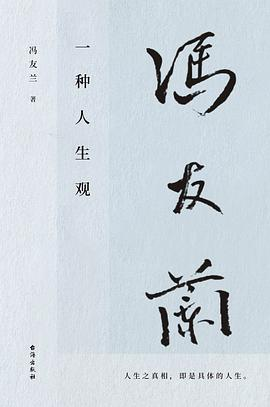 馮友蘭
一种人生观
冯友兰 著
人生之真相，即是具体的人生。
台海出版社